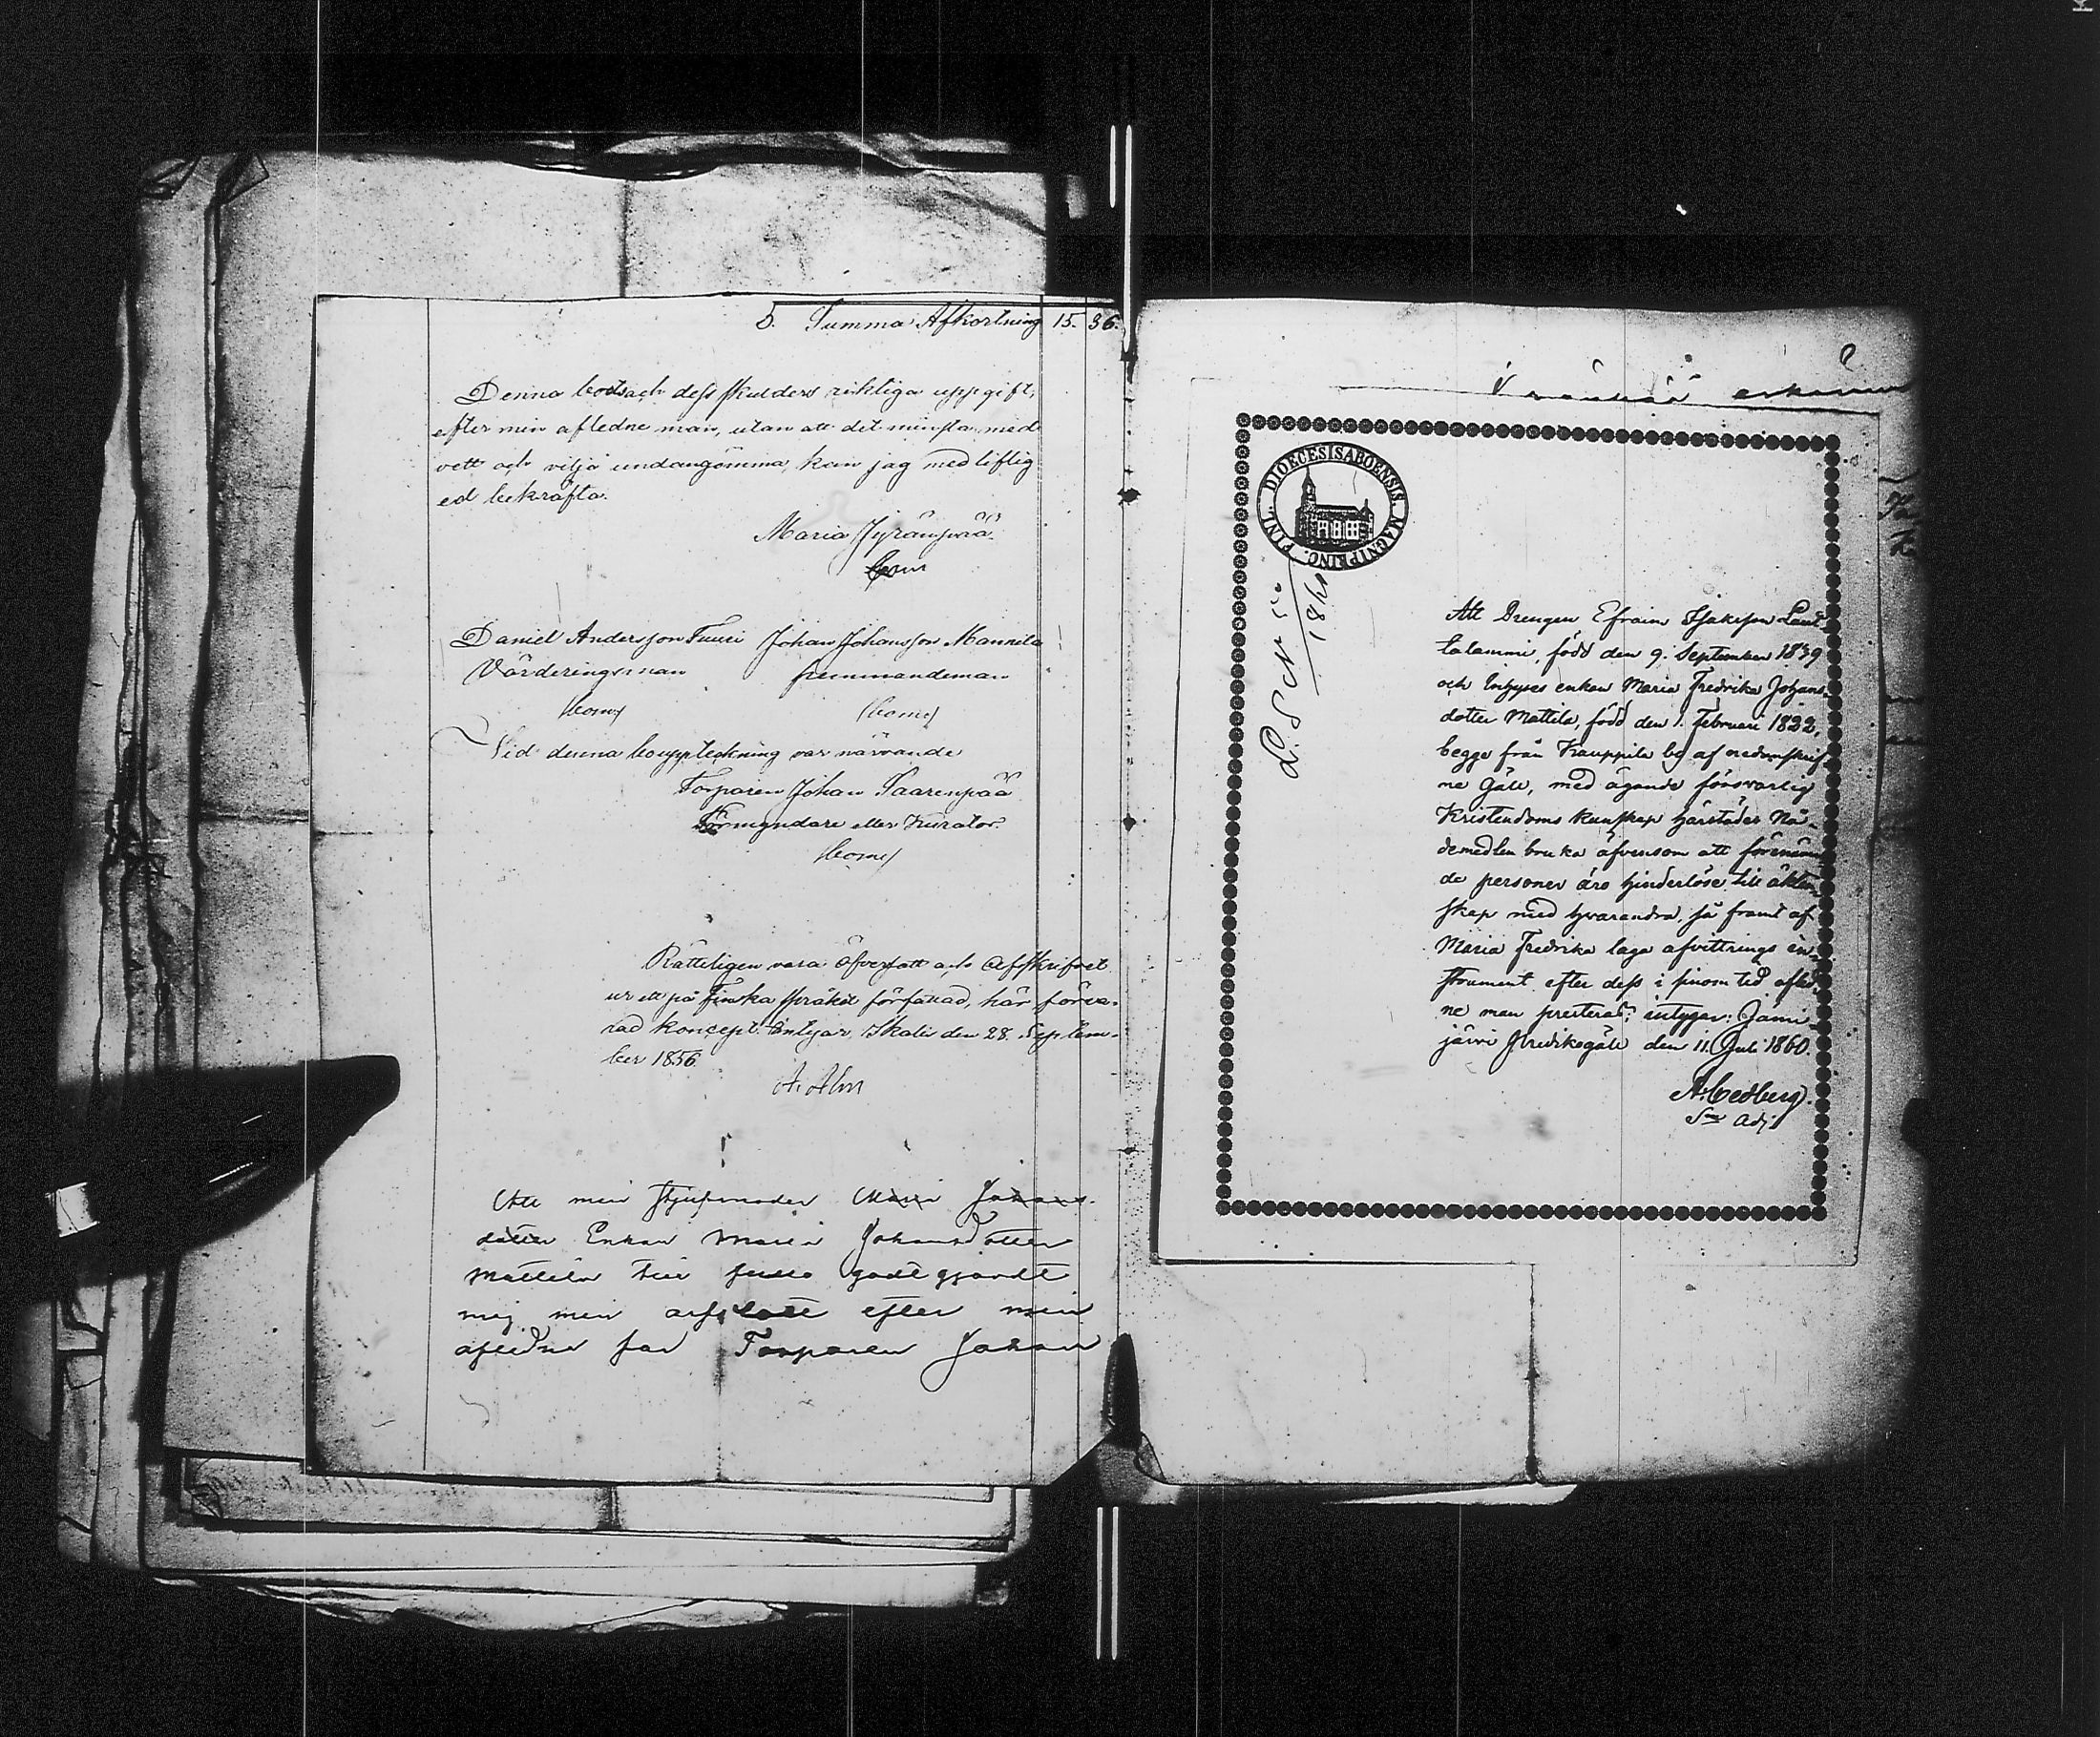 5. Summa Afkortning 15. 36.
Denna bo och dess skulders riktiga uppgift,
efter min afledne man, utan att det minsta med
vett och vilja undangömma, kan jag med liflig
ed bekräfta.
Maria Jyränpää
bom
Daniel Andersson Tuuri Johan Johansson Mannila
Värderingsman fremmandeman
bom/ /bom/
Vid denna bouppteckning var närvande
Torparen Johan Saarenpää
Förmyndare eller Kurator.
/bom/
Rätteligen vara öfversatt och afskrifvet
ur ett på finska språket författad, här förva-
rad koncept. Intygar, Ikalis den 28. Septem-
ber 1856
A. Alm
Att min stjufmoder Maria Johans-
dotter Enkan Maria Johansdotter
Mattila till fullo godtgjordt
mig min arfslott efter min
afledne far Torparen Johan
DIOECESIS ABOENSIS. MAGNI PRINC. FINL.
1860
Att Drengen Efraim Isaksson Laut-
talammi, född den 9. September 1839
och Inhyses enkan Maria Fredrika Johans-
dotter Mattila, född den 1. Februari 1822,
begge från Kauppila by af nedanskrif-
ne Gäll, med ägande försvarlig
Kristendoms kunskap härstädes Nå-
demedlen bruka äfvensom att förenämn
de personer äro hinderlöse till äkten-
skap med hvarandra, så framt af
Maria Fredrika laga afvittrings in-
strument efter dess i sinom tid afled-
ne man presteras: intygar: Jämi-
järvi Predikogäll den 11. Juli 1860.
A. Cedberg.
Sm Adj